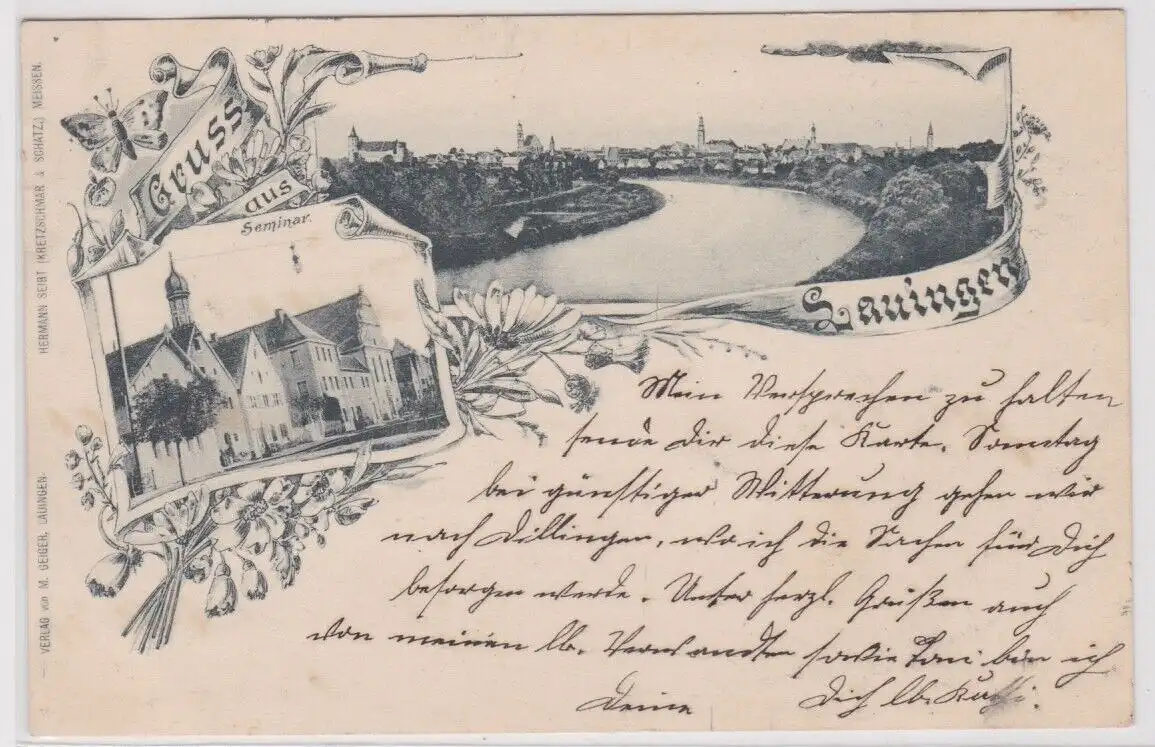 Gruss
aus
Seminar.
Lauingen
Mein Versprechen zu halten
sende Dir diese Karte. Sonntag
bei günstiger Witterung gehen wir
nach Dillingen, wo ich die Sachen für Dich
besorgen werde. Unter herzl. Grüßen auch
von meinen lb. Verwandten sowie bin ich
Deine Dich lb.
HERMANN SEIBT (KRETZSCHMAR & SCHATZ.) MEISSEN.
— VERLAG von M. GEIGER, LAUINGEN.